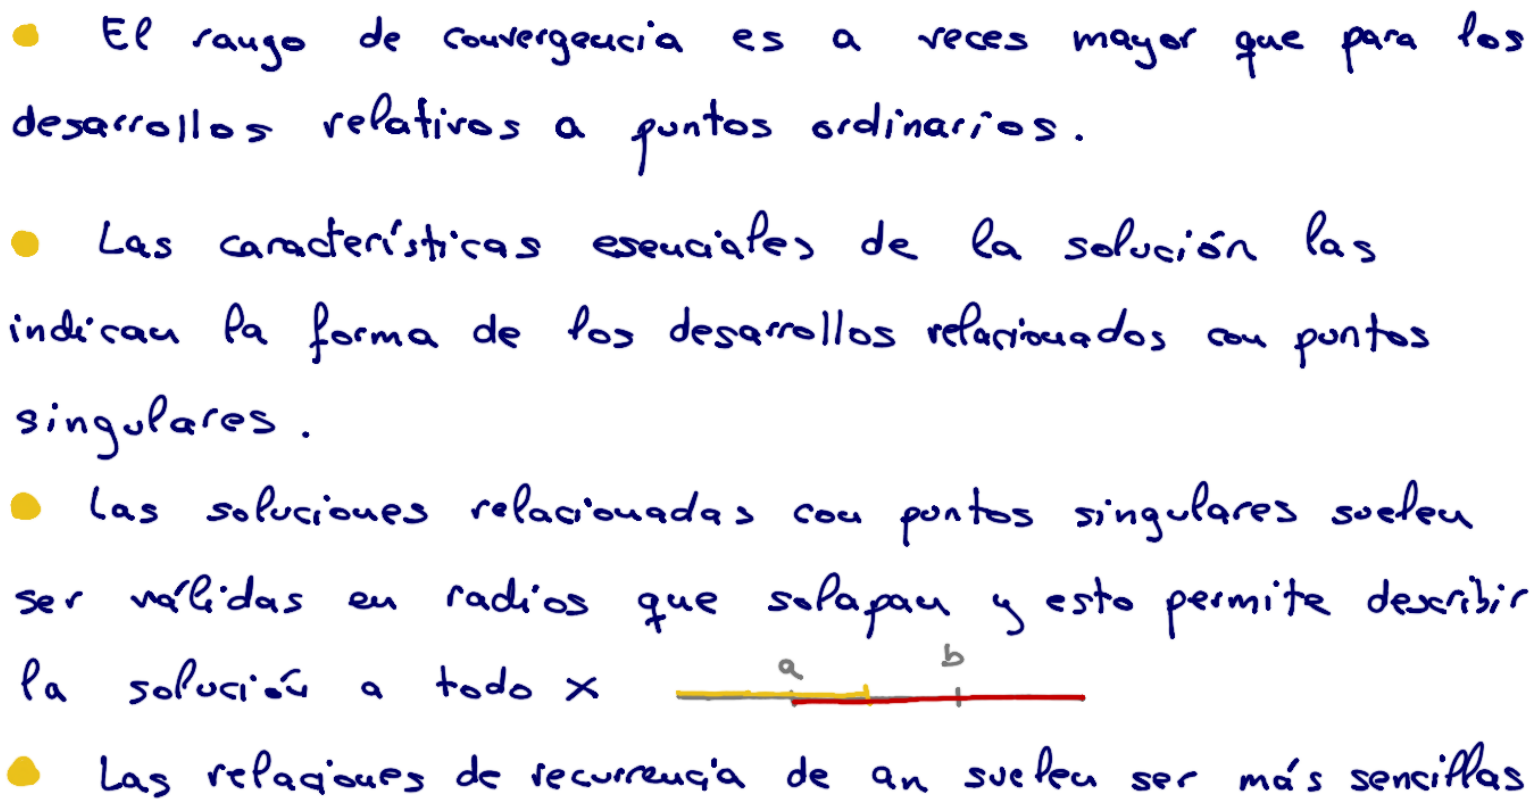 El rango de convergencia es a veces mayor que para los
desarrollos relativos a puntos ordinarios.
Las características esenciales de la solución las
indican la forma de los desarrollos relacionados con puntos
singulares.
Las soluciones relacionadas con puntos singulares suelen
ser válidas en radios que solapan y esto permite describir
la solución a todo x
a b
Las relaciones de recurrencia de an suelen ser más sencillas